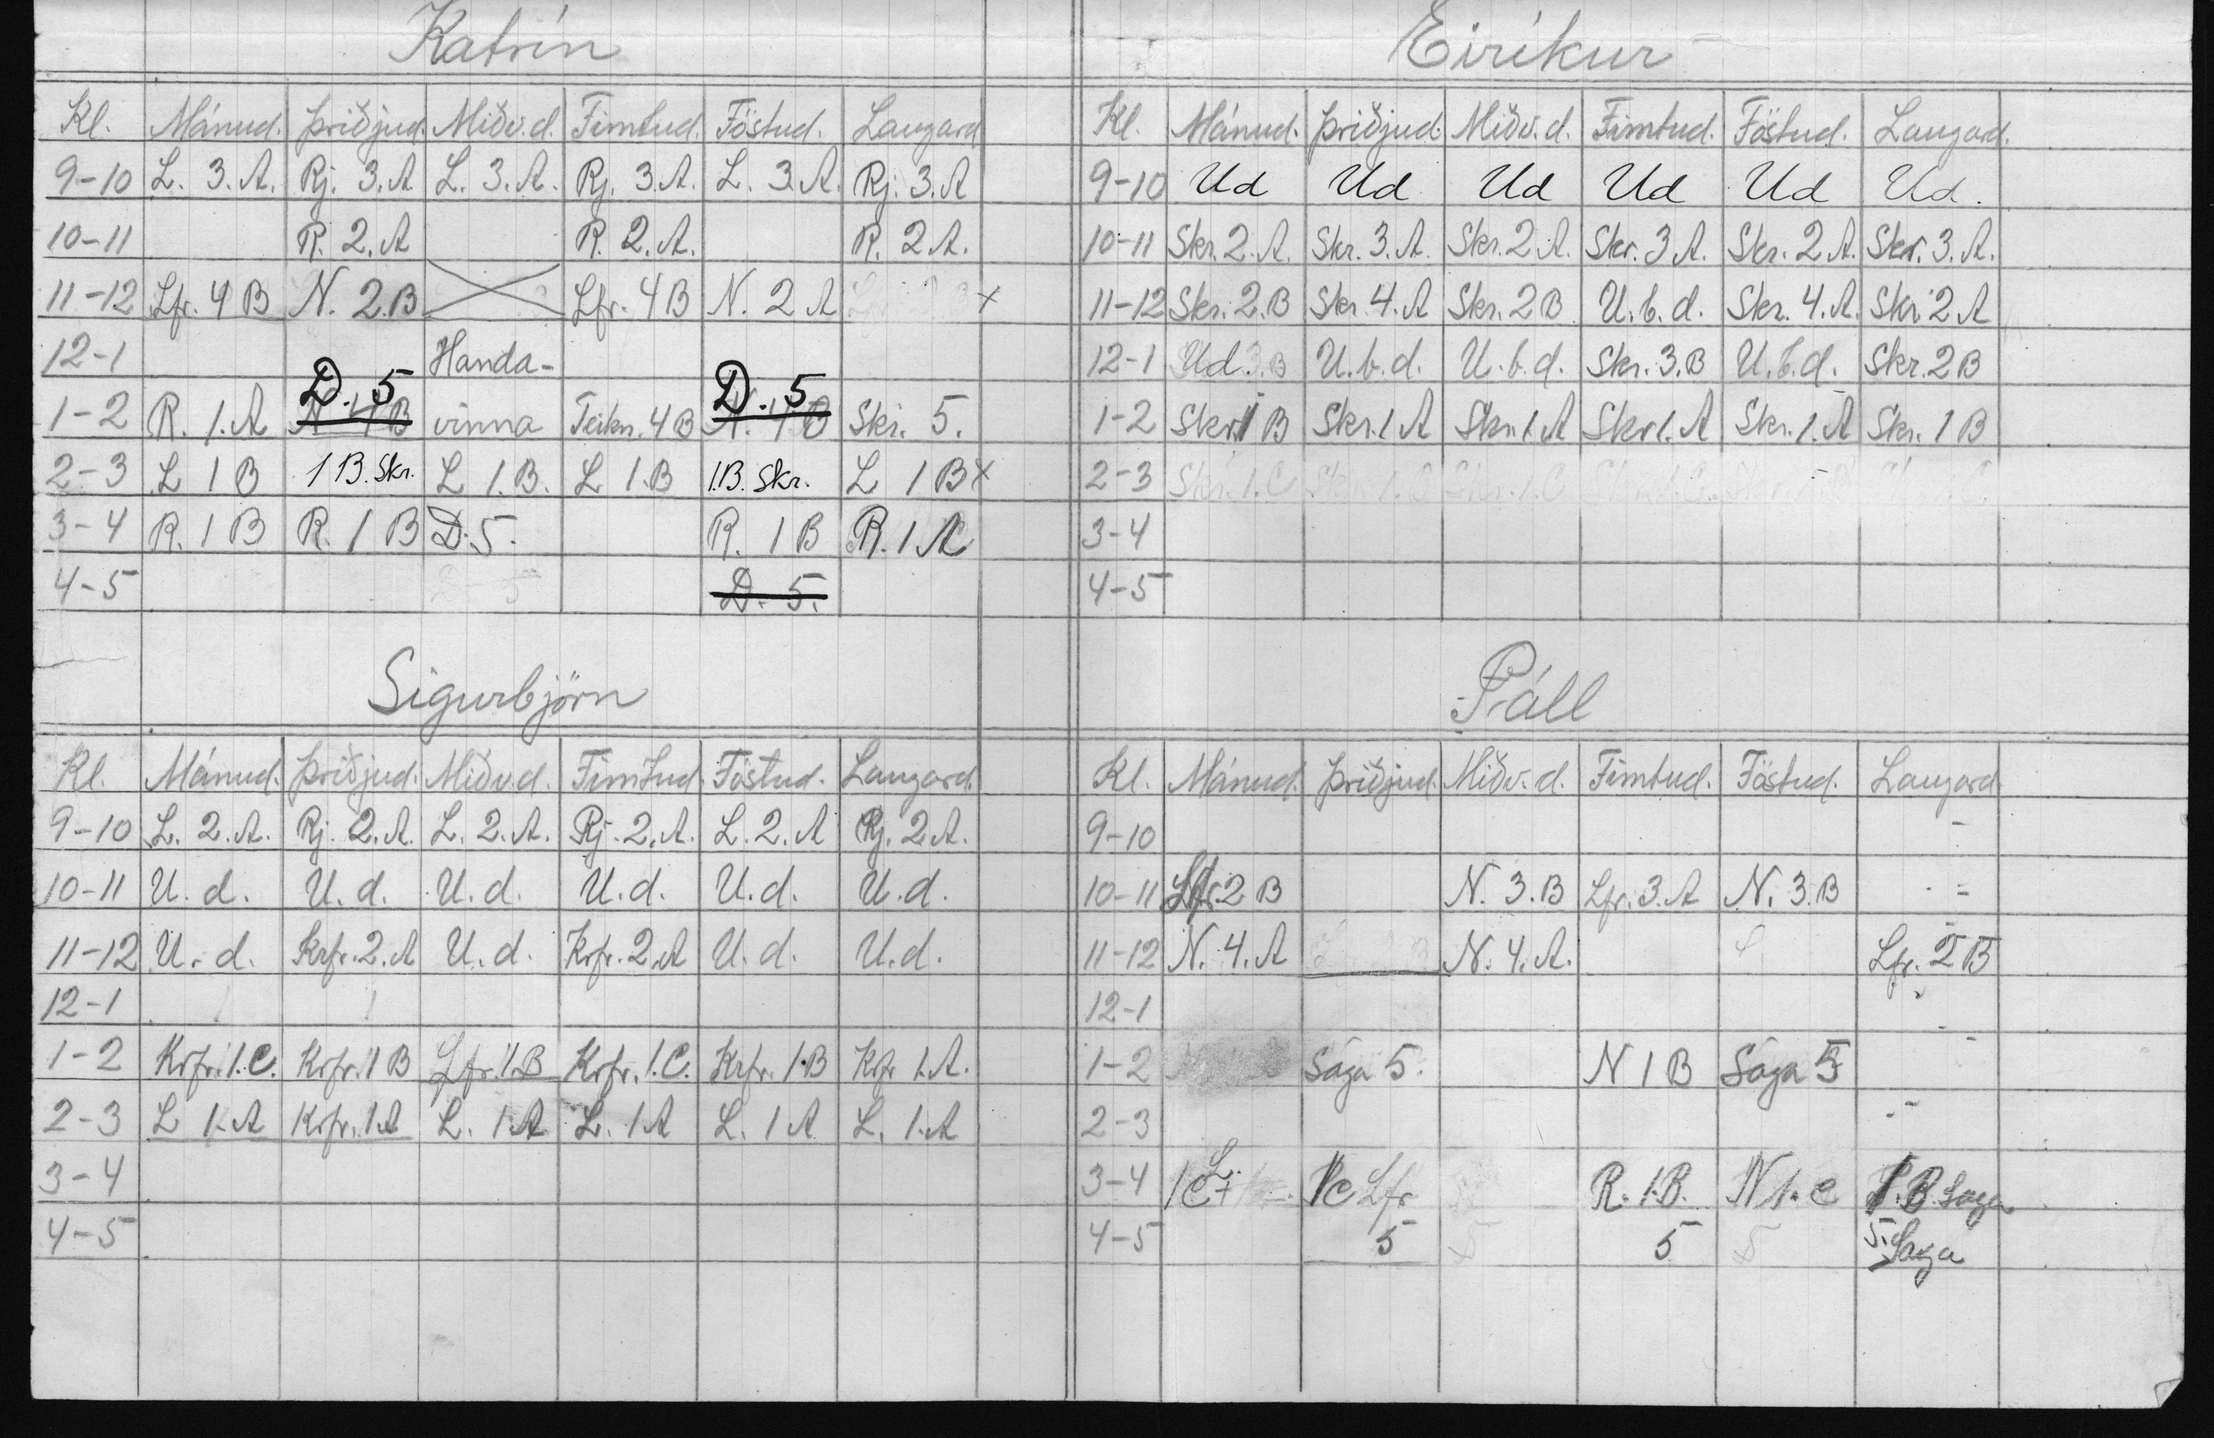 Katrín
Kl. Mánud. Þriðjud. Miðv.d. Fimtud. Föstud. Laugard
9-10 L. 3. A. Rj. 3. A L. 3. A. Rj. 3. A. L. 3 A. Rj. 3. A
10-11 R. 2. A R. 2. A. R. 2 A.
11-12 Lfr. 4 B N. 2.B Lfr. 4 B N. 2 A x
12-1 Handa-
D. 5 D. 5
1-2 R. 1. A N 4 B vinna Teikn. 4 B N. 4 B Skr. 5.
2-3 L 1 B 1 B. Skr. L 1. B. L 1. B 1.B. Skr. L 1 B x
3-4 R. 1 B R. 1 B D. 5. R. 1 B R. 1 A
4-5 D. 5 D. 5.
Eiríkur
Kl. Mánud. Þriðjud. Miðv.d. Fimtud. Föstud. Laugard.
9-10 Ud Ud Ud Ud Ud Ud.
10-11 Skr. 2. A. Skr. 3. A Skr. 2 A. Skr. 3 A. Skr. 2 A. Skr. 3. A.
11-12 Skr. 2. B Skr 4. A Skr. 2 B U. b. d. Skr. 4. A. Skr 2 A
12-1 Ud 3. B U. b. d. U. b. d. Skr. 3. B U. b. d. Skr. 2 B
1-2 Skr. 1 B Skr. 1 A Skr. 1. A Skr 1. A Skr. 1. A Skr. 1 B
2-3 Skr. 1. C
3-4
4-5
Sigurbjörn
Kl. Mánud. Þriðjud. Miðv.d. Fimtud. Föstud. Laugard.
9-10 L. 2. A. Rj. 2. A. L. 2. A. Rj. 2. A. L. 2. A Rj. 2 A.
10-11 U. d. U. d. U. d. U. d. U. d. U. d.
11-12 U. d. Krfr. 2. A U. d. Krfr. 2. A U. d. U. d.
12-1
1-2 Krfr. 1. C. Krfr. 1 B Lfr. 1. B Krfr. 1. C. Krfr. 1. B Krfr 1. A.
2-3 L 1. A Krfr. 1 A L. 1. A L. 1 A L. 1 A L. 1. A
3-4
4-5
Páll
Kl. Mánud. Þriðjud. Miðv. d. Fimtud. Föstud. Laugard.
9-10
10-11 Lfr. 2 B N. 3. B Lfr. 3. A N. 3. B
11-12 N. 4. A N. 4. A. Lfr. 2 B
12-1
1-2 Saga 5. N 1 B Saga 5
2-3
3-4 1 C L. 1 C Lfr R. 1. B. N 1. C 1. B. Saga
4-5 5 5 5 5. Saga